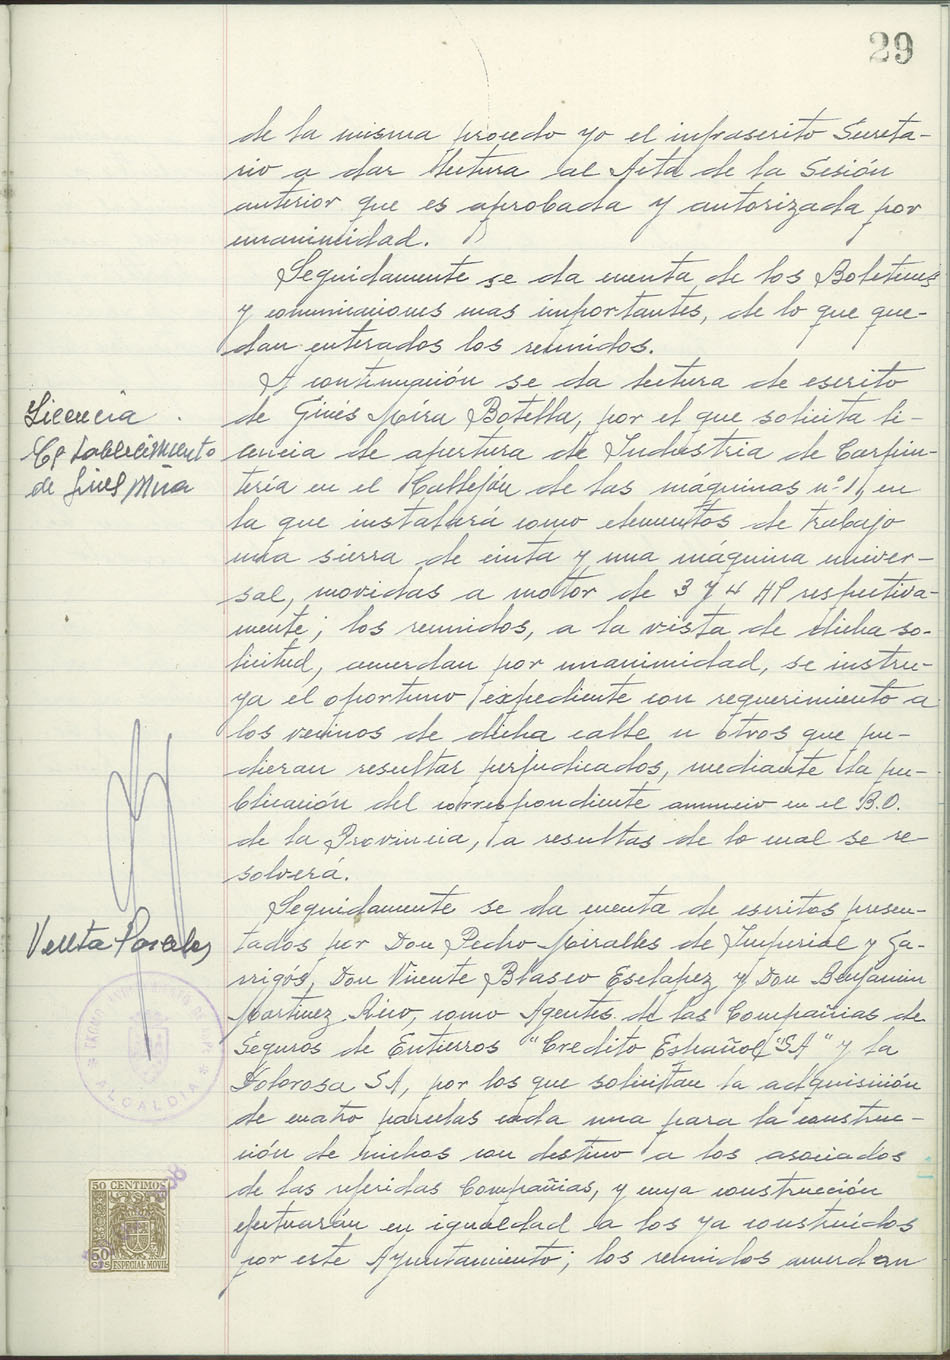 29
de la misma procedo yo el infrascrito Secreta-
rio a dar lectura al Acta de la Sesión
anterior que es aprobada y autorizada por
unanimidad.
Seguidamente se da cuenta de los Boletines
y comunicaciones mas importantes, de lo que que-
dan enterados los reunidos.
A continuación se da lectura de escrito
de Ginés Mira Botella, por el que solicita li-
cencia de apertura de Industria de Carpin-
tería en el Callejón de las máquinas nº 1, en
la que instalará como elementos de trabajo
una sierra de cinta y una máquina univer-
sal, movidas a motor de 3 y 4 HP respectiva-
mente; los reunidos, a la vista de dicha so-
licitud, acuerdan por unanimidad, se instru-
ya el oportuno expediente con requerimiento a
los vecinos de dicha calle u otros que pu-
dieran resultar perjudicados, mediante la pu-
blicación del correspondiente anuncio en el B.O.
de la Provincia, a resultas de lo cual se re-
solverá.
Seguidamente se da cuenta de escritos presen-
tados por Don Pedro Miralles de Imperial y Ga-
rrigós, Don Vicente Blasco Esclapez y Don Benjamin
Martinez Rico, como Agentes de las Compañias de
Seguros de Entierros "Credito Español "SA" y la
Dolorosa SA, por los que solicitan la adquisición
de cuatro parcelas cada una para la construc-
ción de nichos con destino a los asociados
de las referidas Compañias, y cuya construcción
efectuarán en igualdad a los ya construidos
por este Ayuntamiento; los reunidos acuerdan
Licencia
Establecimiento
de Ginés Mira
Venta Parcelas
ALCALDIA
50 CENTIMOS
50
CTS
ESPECIAL MOVIL